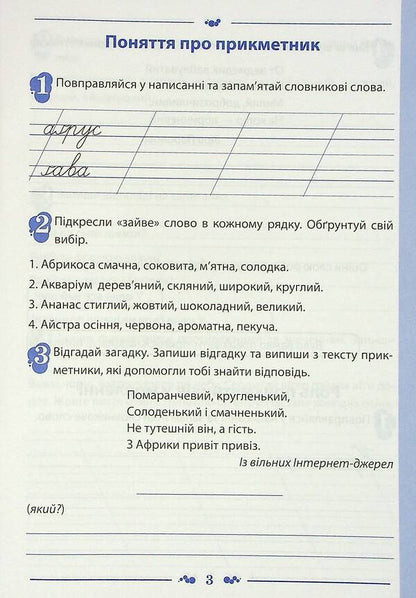 Поняття про прикметник
1 Повправляйся у написанні та запам'ятай словникові слова.
аґрус
ґава
2 Підкресли «зайве» слово в кожному рядку. Обґрунтуй свій
вибір.
1. Абрикоса смачна, соковита, м'ятна, солодка.
2. Акваріум дерев'яний, скляний, широкий, круглий.
3. Ананас стиглий, жовтий, шоколадний, великий.
4. Айстра осіння, червона, ароматна, пекуча.
3 Відгадай загадку. Запиши відгадку та випиши з тексту прик-
метники, які допомогли тобі знайти відповідь.
Помаранчевий, кругленький,
Солоденький і смачненький.
Не тутешній він, а гість.
З Африки привіт привіз.
Із вільних Інтернет-джерел
(який?)
3